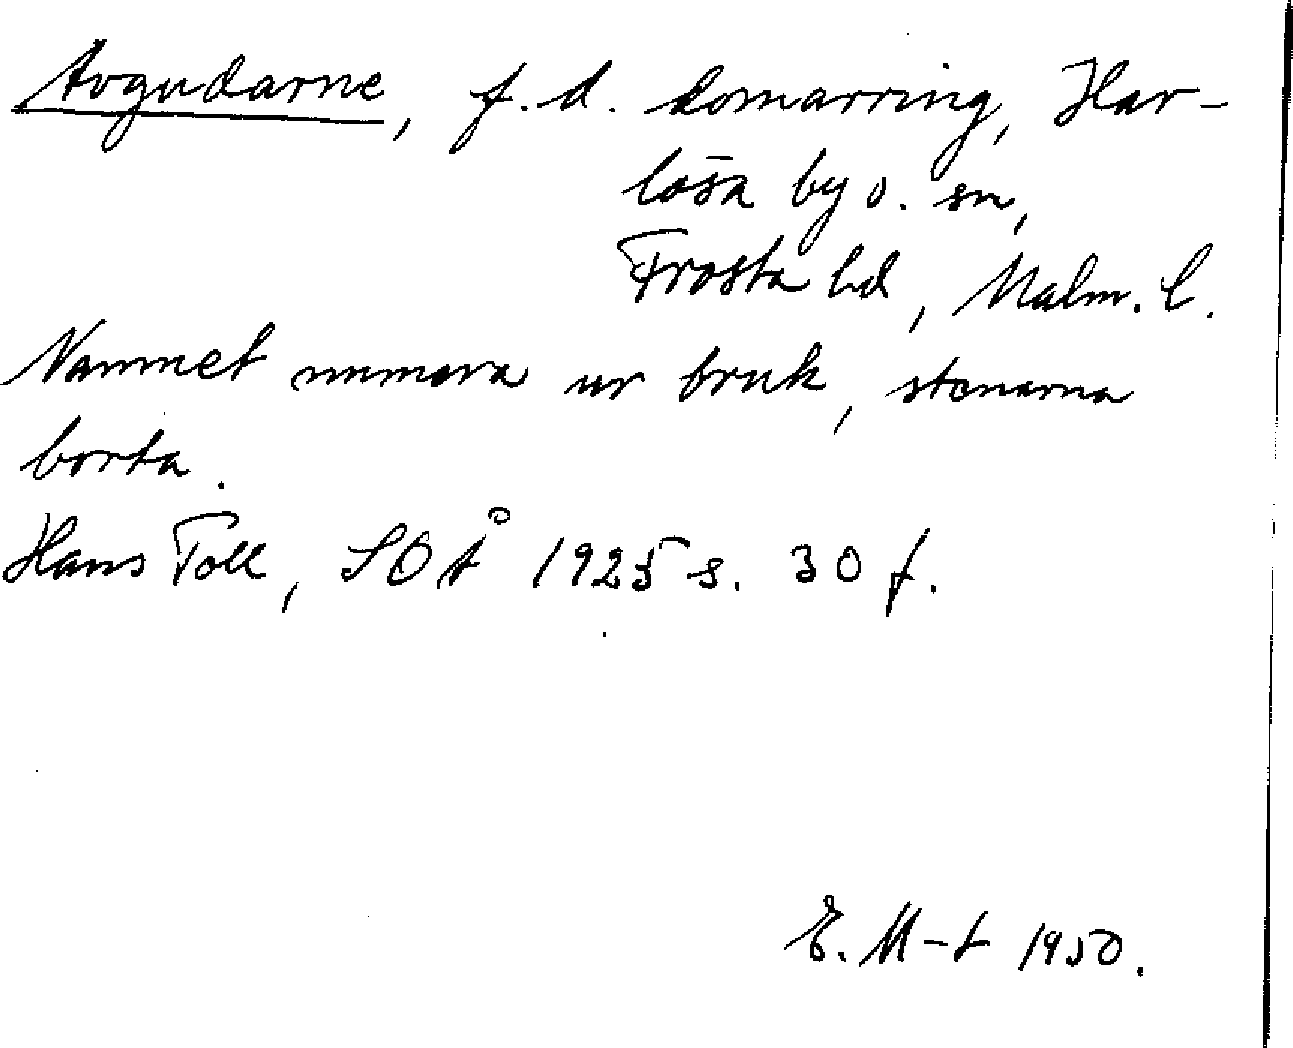 Avgudarne, f.d. domarring, Har-
lösa by o. sn,
Frosta hd, Malm. l.
Namnet numera ur bruk, stenarna
borta.
Hans Toll, SOÅ 1925 s. 30 f.
E. M-t 1950.